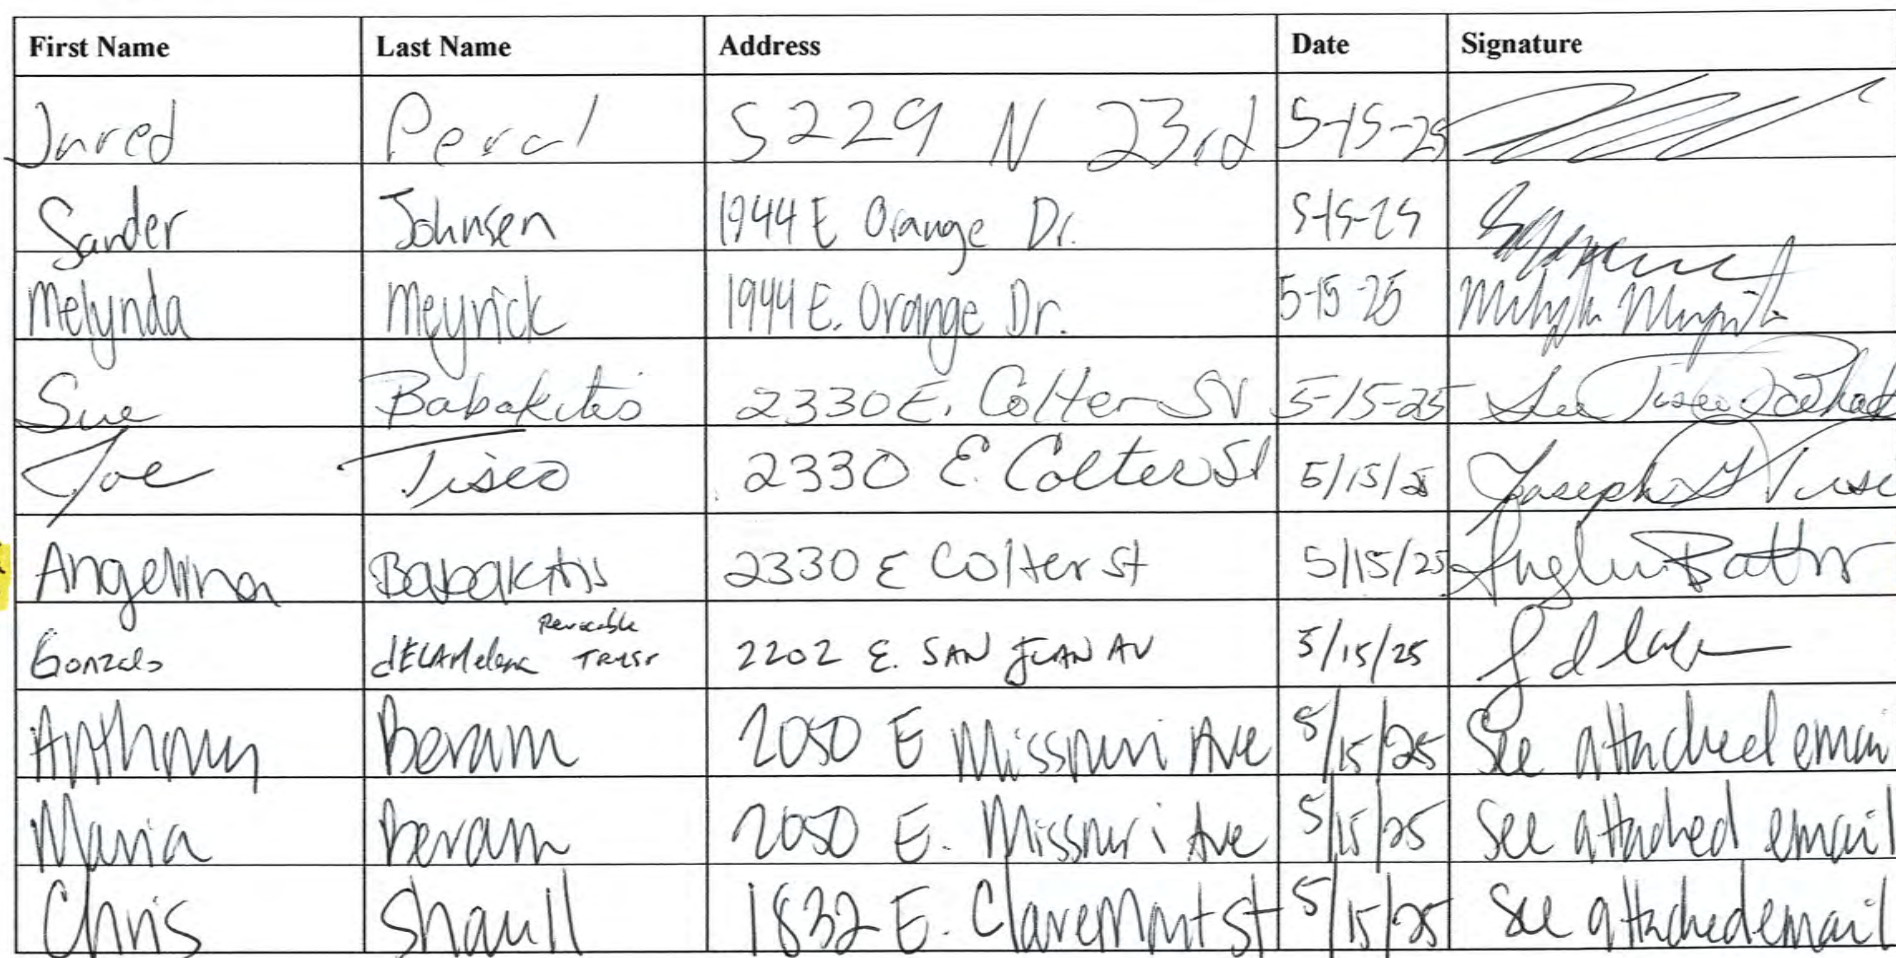 First Name Last Name Address Date Signature
Jared Peral 5229 N 23rd 5-15-25
Sander Johnsen 1944 E Orange Dr. 5-15-25
Melynda Meyrick 1944 E. Orange Dr. 5-15-25
Sue Babakitis 2330 E. Colter St 5-15-25 Sue Tiseo
Joe Tiseo 2330 E. Colter St 5/15/25 Joseph
Angelina Babakitis 2330 E Colter St 5/15/25
Revocable
Gonzalo dELAMelena TRUST 2202 E. SAN JUAN AV 5/15/25
Anthony Beram 2050 E Missouri Ave 5/15/25 See attached emai
Maria Beram 2050 E. Missouri Ave 5/15/25 See attached email
Chris Shaull 1832 E. Claremont St 5/15/25 See attached email